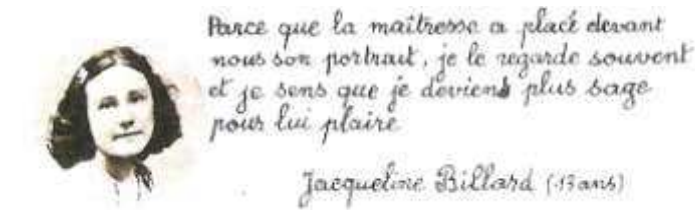 Parce que la maîtresse a placé devant
nous son portrait, je le regarde souvent
et je sens que je deviens plus sage
pour lui plaire
Jacqueline Billard (13 ans)